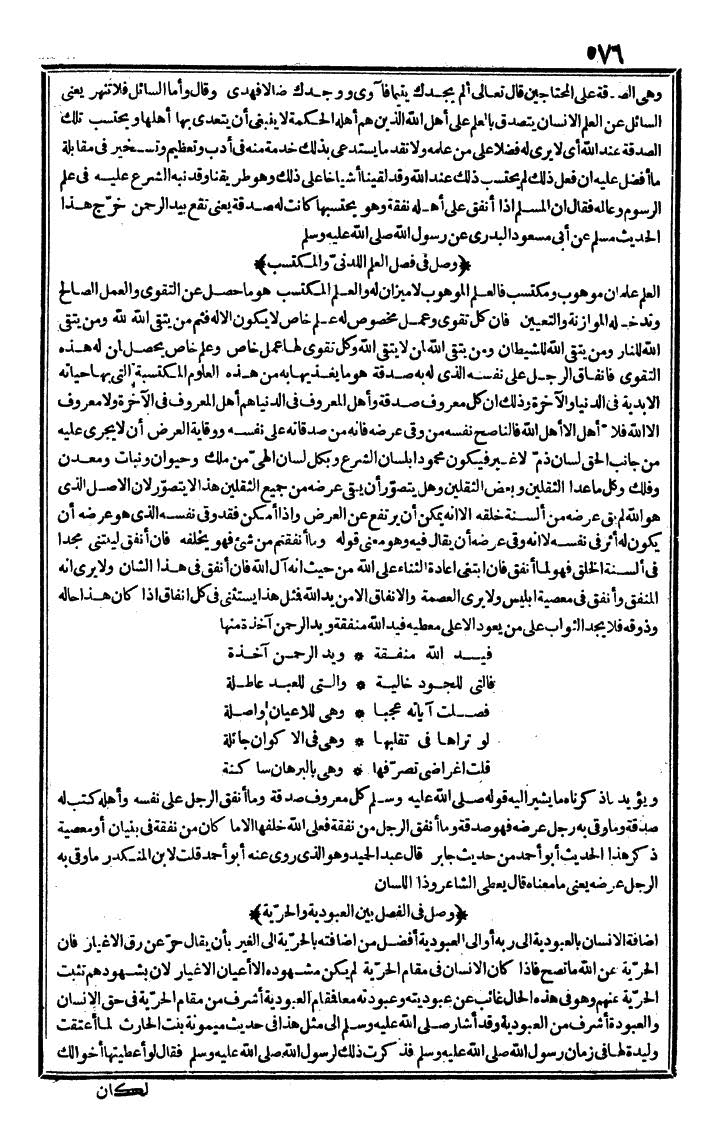 ٥٧٦
وهى الصدقة على المحتاجين قال تعالى ألم يجدك يتيما فآوى ووجدك ضالا فهدى وقال وأما السائل فلا تنهر يعنى
السائل عن العلم الانسان يتصدق بالعلم على أهل الله الذين هم أهله الحكمة لا ينبغى أن يتعدى بها أهلها ويحتسب تلك
الصدقة عند الله أى لا يرى له فضلا على من علمه ولا تقدما يستدعى بذلك خدمة منه فى أدب وتعظيم وتسخير فى مقابلة
ما أفضل عليه ان فعل ذلك لم يحتسب ذلك عند الله وقد لقينا أشياخا على ذلك وهو طريقنا وقد نبه الشرع عليه فى علم
الرسوم وعاله فقال ان المسلم اذا أنفق على أهله نفقة وهو يحتسبها كانت له صدقة يعنى تقع بيد الرحمن خرّج هذا
الحديث مسلم عن أبى مسعود البدرى عن رسول الله صلى الله عليه وسلم
﴿وصل فى فصل العلم اللدنىّ والمكتسب﴾
العلم علمان موهوب ومكتسب فالعلم الموهوب لا ميزان له والعلم المكتسب هو ما حصل عن التقوى والعمل الصالح
وتدخله الموازنة والتعيين فان كل تقوى وعمل مخصوص له علم خاص لا يكون الا له فثم من يتقى الله لله ومن يتقى
الله للنار ومن يتقى الله للشيطان ومن يتقى الله ان لا يتقى الله وكل تقوى لها عمل خاص وعلم خاص يحصل لمن له هذه
التقوى فانفاق الرجل على نفسه الذى له به صدقة هو ما يغذيها به من هذه العلوم المكتسبة التى بها حياته
الابدية فى الدنيا والآخرة وذلك ان كل معروف صدقة وأهل المعروف فى الدنيا هم أهل المعروف فى الآخرة ولا معروف
الا الله فلا أهل الا أهل الله فالناصح نفسه من وقى عرضه فانه من صدقاته على نفسه ووقاية العرض أن لا يجرى عليه
من جانب الحق لسان ذمّ لا غير فيكون محمودا بلسان الشرع وبكل لسان الهىّ من ملك وحيوان ونبات ومعدن
وفلك وكل ما عدا الثقلين وبعض الثقلين وهل يتصوّر أن يبقى عرضه من جميع الثقلين هذا لا يتصوّر لان الاصل الذى
هو الله لم يق عرضه من ألسنة خلقه الا انه يمكن أن يرتفع عن العرض واذا أمكن فقد وقى نفسه الذى هو عرضه أن
يكون له أثر فى نفسه لا انه وقى عرضه أن يقال فيه وهو معنى قوله وما أنفقتم من شئ فهو يخلفه فان أنفق ليبتنى مجدا
فى ألسنة الخلق فهو لما أنفق فان ابتغى اعادة الثناء على الله من حيث انه آل الله فان أنفق فى هذا الشان ولا يرى انه
المنفق وأنفق فى معصية ابليس ولا يرى العصمة والانفاق الا من يد الله فمثل هذا يستثنى فى كل انفاق اذا كان هذا حاله
وذوقه فلا يجد الثواب على من يعود الا على معطيه فيد الله منفقة ويد الرحمن آخذة منها
فيد الله منفقة * ويد الرحمن آخذة
فالتى للجود خالية * والتى للعبد عاطلة
فصلت آياته عجبا * وهى للاعيان واصلة
لو تراها فى تقلبها * وهى فى الاكوان جائلة
قلت اغراضى تصرّفها * وهى بالبرهان ساكنة
ويؤيد ما ذكرناه ما يشير اليه قوله صلى الله عليه وسلم كل معروف صدقة وما أنفق الرجل على نفسه وأهله كتب له
صدقة وما وقى به رجل عرضه فهو صدقة وما أنفق الرجل من نفقة فعلى الله خلفها الا ما كان من نفقة فى بنيان أو معصية
ذكر هذا الحديث أبو أحمد من حديث جابر قال عبد الحميد وهو الذى روى عنه أبو أحمد قلت لابن المنكدر ما وقى به
الرجل عرضه يعنى ما معناه قال يعطى الشاعر وذا اللسان
﴿وصل فى الفصل بين العبودية والحرّية﴾
اضافة الانسان بالعبودية الى ربه أو الى العبودية أفضل من اضافته بالحرّية الى الغير بأن يقال حرّ عن رق الاغيار فان
الحرّية عن الله ما تصح فاذا كان الانسان فى مقام الحرّية لم يكن مشهوده الا أعيان الاغيار لان بشهودهم تثبت
الحرّية عنهم وهو فى هذه الحال غائب عن عبوديته وعبودته معا فقام العبودية أشرف من مقام الحرّية فى حق الانسان
والعبودة أشرف من العبودية وقد أشار صلى الله عليه وسلم الى مثل هذا فى حديث ميمونة بنت الحارث لما أعتقت
وليدة لها فى زمان رسول الله صلى الله عليه وسلم فذكرت ذلك لرسول الله صلى الله عليه وسلم فقال لو أعطيتها أخوالك
لكان